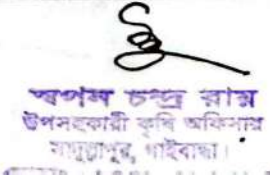 স্বপন চন্দ্র রায়
উপসহকারী কৃষি অফিসার
সাদুল্লাপুর, গাইবান্ধা।